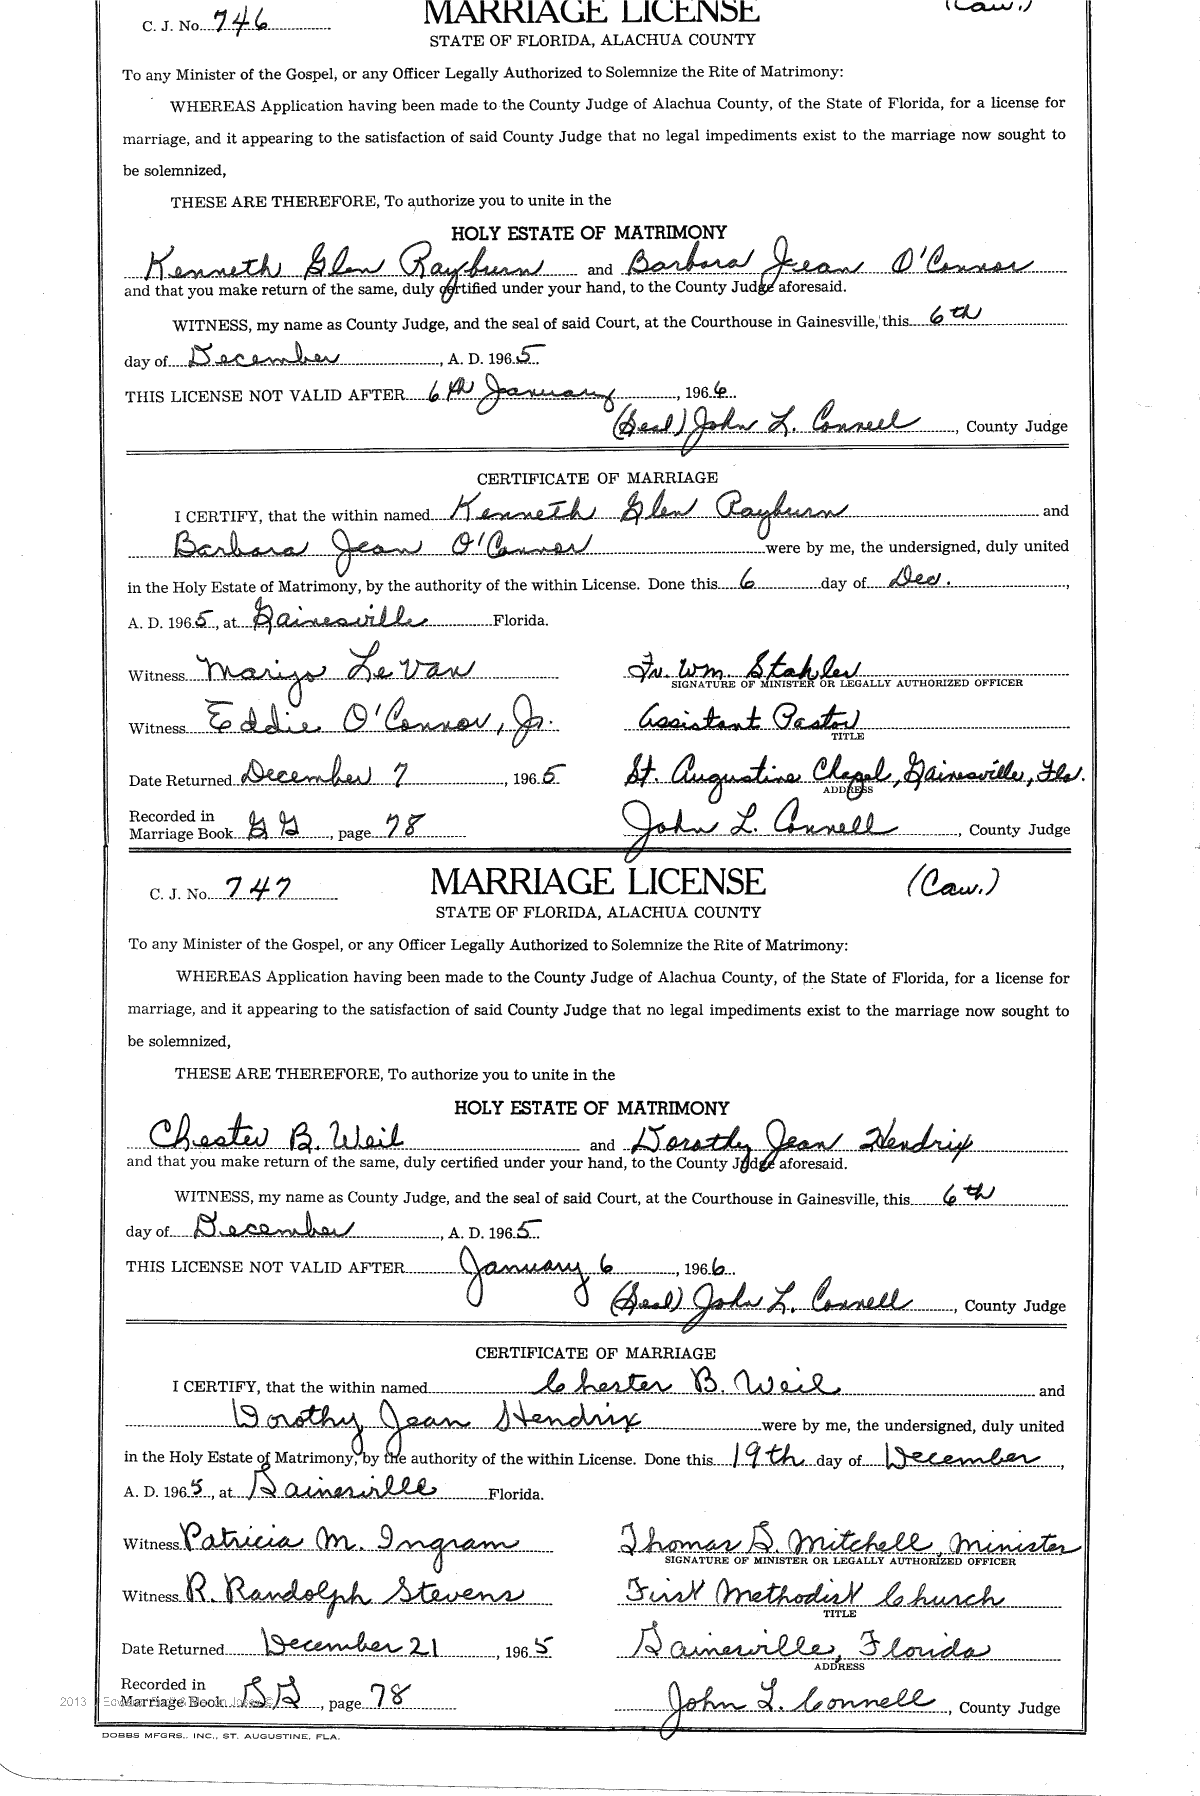 C. J. No. 746 MARRIAGE LICENSE (Caw.)
STATE OF FLORIDA, ALACHUA COUNTY
To any Minister of the Gospel, or any Officer Legally Authorized to Solemnize the Rite of Matrimony:
WHEREAS Application having been made to the County Judge of Alachua County, of the State of Florida, for a license for
marriage, and it appearing to the satisfaction of said County Judge that no legal impediments exist to the marriage now sought to
be solemnized,
THESE ARE THEREFORE, To authorize you to unite in the
HOLY ESTATE OF MATRIMONY
Kenneth Glen Rayburn and Barbara Jean O'Connor
and that you make return of the same, duly certified under your hand, to the County Judge aforesaid.
WITNESS, my name as County Judge, and the seal of said Court, at the Courthouse in Gainesville, this 6th
day of December, A. D. 1965.
THIS LICENSE NOT VALID AFTER 6th January, 1966.
(Seal) John L. Connell, County Judge
CERTIFICATE OF MARRIAGE
I CERTIFY, that the within named Kenneth Glen Rayburn and
Barbara Jean O'Connor were by me, the undersigned, duly united
in the Holy Estate of Matrimony, by the authority of the within License. Done this 6 day of Dec.,
A. D. 1965, at Gainesville Florida.
Witness Marijo LeVan Fr. Wm. Stahler
SIGNATURE OF MINISTER OR LEGALLY AUTHORIZED OFFICER
Witness Eddie O'Connor, Jr. Assistant Pastor
TITLE
Date Returned December 7, 1965 St. Augustine Chapel, Gainesville, Fla.
ADDRESS
Recorded in
Marriage Book GG, page 78 John L. Connell, County Judge
C. J. No. 747 MARRIAGE LICENSE (Caw.)
STATE OF FLORIDA, ALACHUA COUNTY
To any Minister of the Gospel, or any Officer Legally Authorized to Solemnize the Rite of Matrimony:
WHEREAS Application having been made to the County Judge of Alachua County, of the State of Florida, for a license for
marriage, and it appearing to the satisfaction of said County Judge that no legal impediments exist to the marriage now sought to
be solemnized,
THESE ARE THEREFORE, To authorize you to unite in the
HOLY ESTATE OF MATRIMONY
Chester B. Weil and Dorothy Jean Hendrix
and that you make return of the same, duly certified under your hand, to the County Judge aforesaid.
WITNESS, my name as County Judge, and the seal of said Court, at the Courthouse in Gainesville, this 6th
day of December, A. D. 1965.
THIS LICENSE NOT VALID AFTER January 6, 1966.
(Seal) John L. Connell, County Judge
CERTIFICATE OF MARRIAGE
I CERTIFY, that the within named Chester B. Weil and
Dorothy Jean Hendrix were by me, the undersigned, duly united
in the Holy Estate of Matrimony, by the authority of the within License. Done this 19th day of December,
A. D. 1965, at Gainesville Florida.
Witness Patricia M. Ingram Thomas G. Mitchell, Minister
SIGNATURE OF MINISTER OR LEGALLY AUTHORIZED OFFICER
Witness R. Randolph Stevens First Methodist Church
TITLE
Date Returned December 21, 1965 Gainesville, Florida
ADDRESS
Recorded in
Marriage Book GG, page 78 John L. Connell, County Judge
2013
DOBBS MFGRS., INC., ST. AUGUSTINE, FLA.